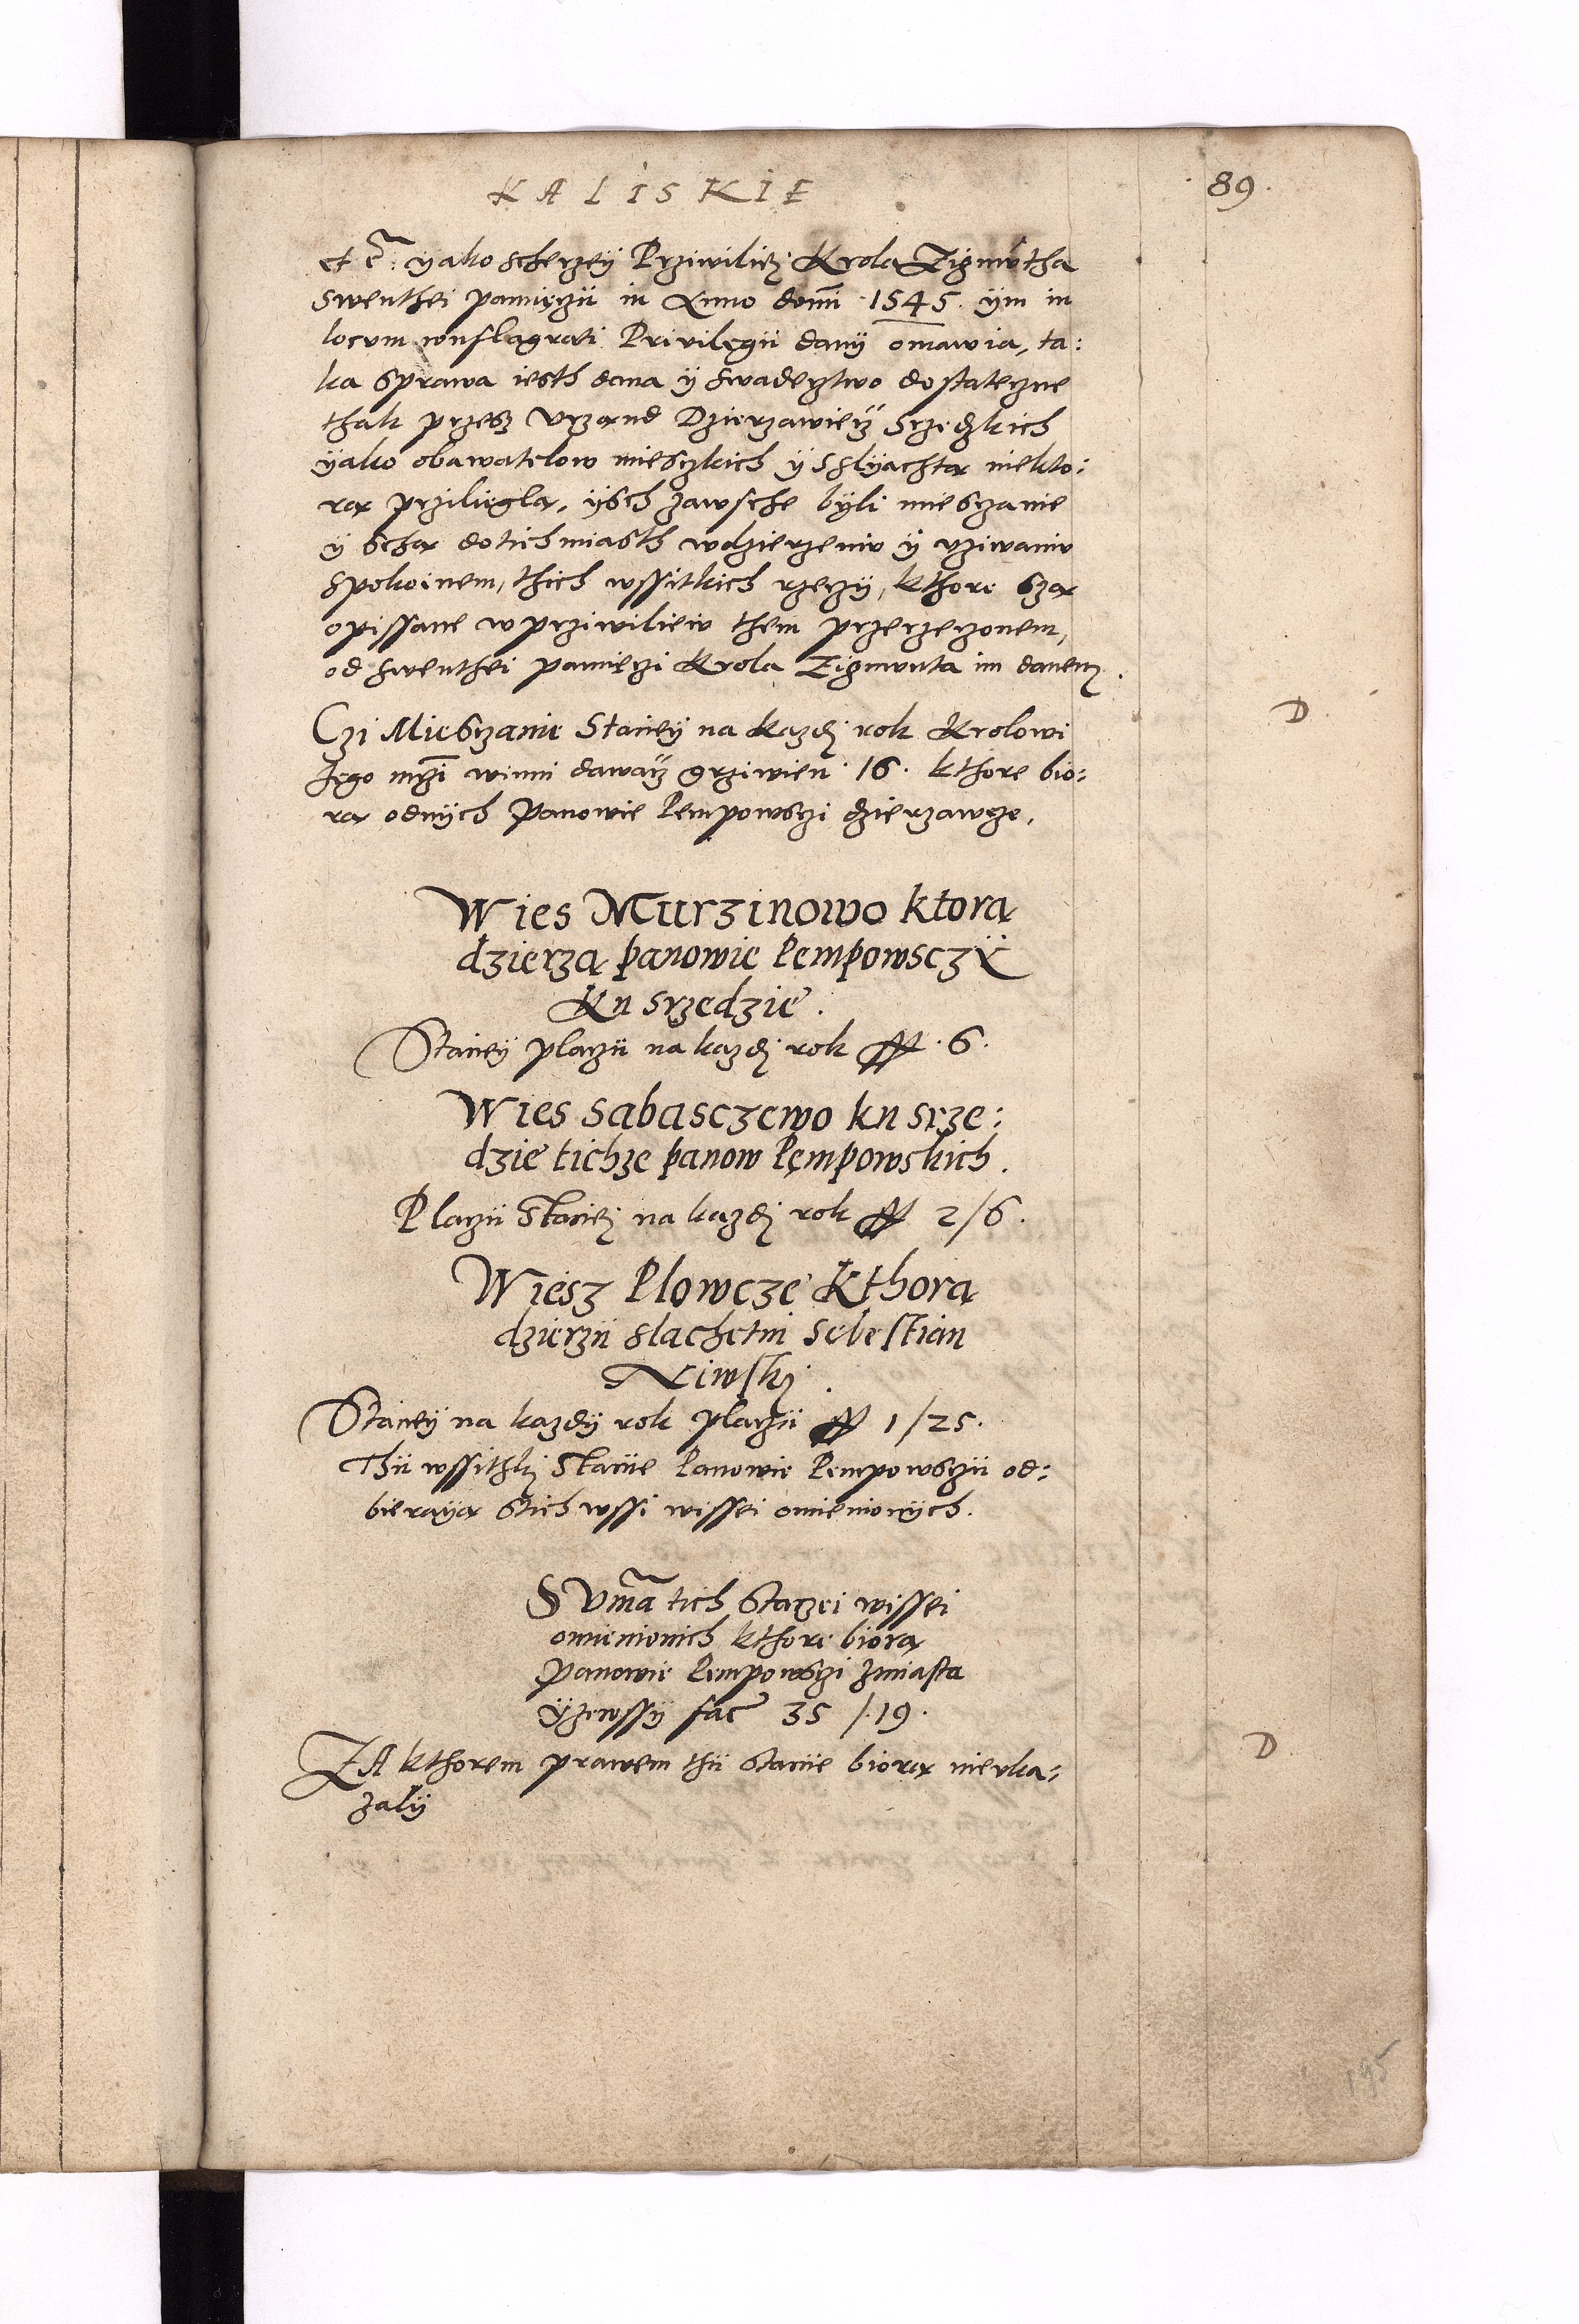 KALISKIE
89.
et c̃. ÿako scherzeÿ Prziwiliej Krola Zigmũtha
Swenthei pamięczii in Anno domi 1545. ÿm in
locum conflagrati Privilegii danÿ omawia, ta:
ka sprawa iesth dana ÿ swadeztwo dostateczne
thak przesz Vrzand Dzierzawiecz Srzedzkich
ÿako obawatelow miesczkich ÿ Slÿachta niekto:
ra przilięgla, ÿsch zawsche bÿli miesczanie
ÿ Scha dotichmiasth wdzierzeniv ÿ vziwaniv
spokoinem, thich wssitkich rzeczÿ, kthore sza
opissane w prziwiliew them przerzeczonem,
od swenthei pamięczi Krola Zigmunta im danem.
D
Czi Miesczanie Stacieÿ na kazdj rok Krolowi
Jego mczi winni dawacz grziwien 16. kthore bio:
ra odnÿch Panowie Pempowsczi dzierzawcze.
Wies Murzinowo ktora
dzierza panowie Pempowsczÿ
Kn srzedzie.
Stacieÿ placzii na kazdj rok ꟿ. 6.
Wies sabasczewo kn srze:
dzie tichze panow Pempowskich.
Placzii Staciej na kazdj rok ꟿ 2/6.
Wiesz Plowcze kthora
dzierzii slachetni sebestian
Niwskj.
Stacieÿ na kazdÿ rok placzii ꟿ 1/25.
Thii wssithkj Staciie Panowie Pempowsczii od:
bieraÿa stich wssi wissei omienionÿch.
SVma tich Staczei wissei
omienionich kthore biora
Panowie Pempowsczi zmiasta
ÿzewssÿ fac 35 /.19.
D
ZA kthorem prawem thii Staciie biora nievka:
zalÿ
195